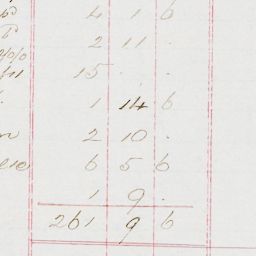 4 1 6
2 11 .
15 . .
1 14 6
2 10 .
6 5 6
1 9 .
261 9 6